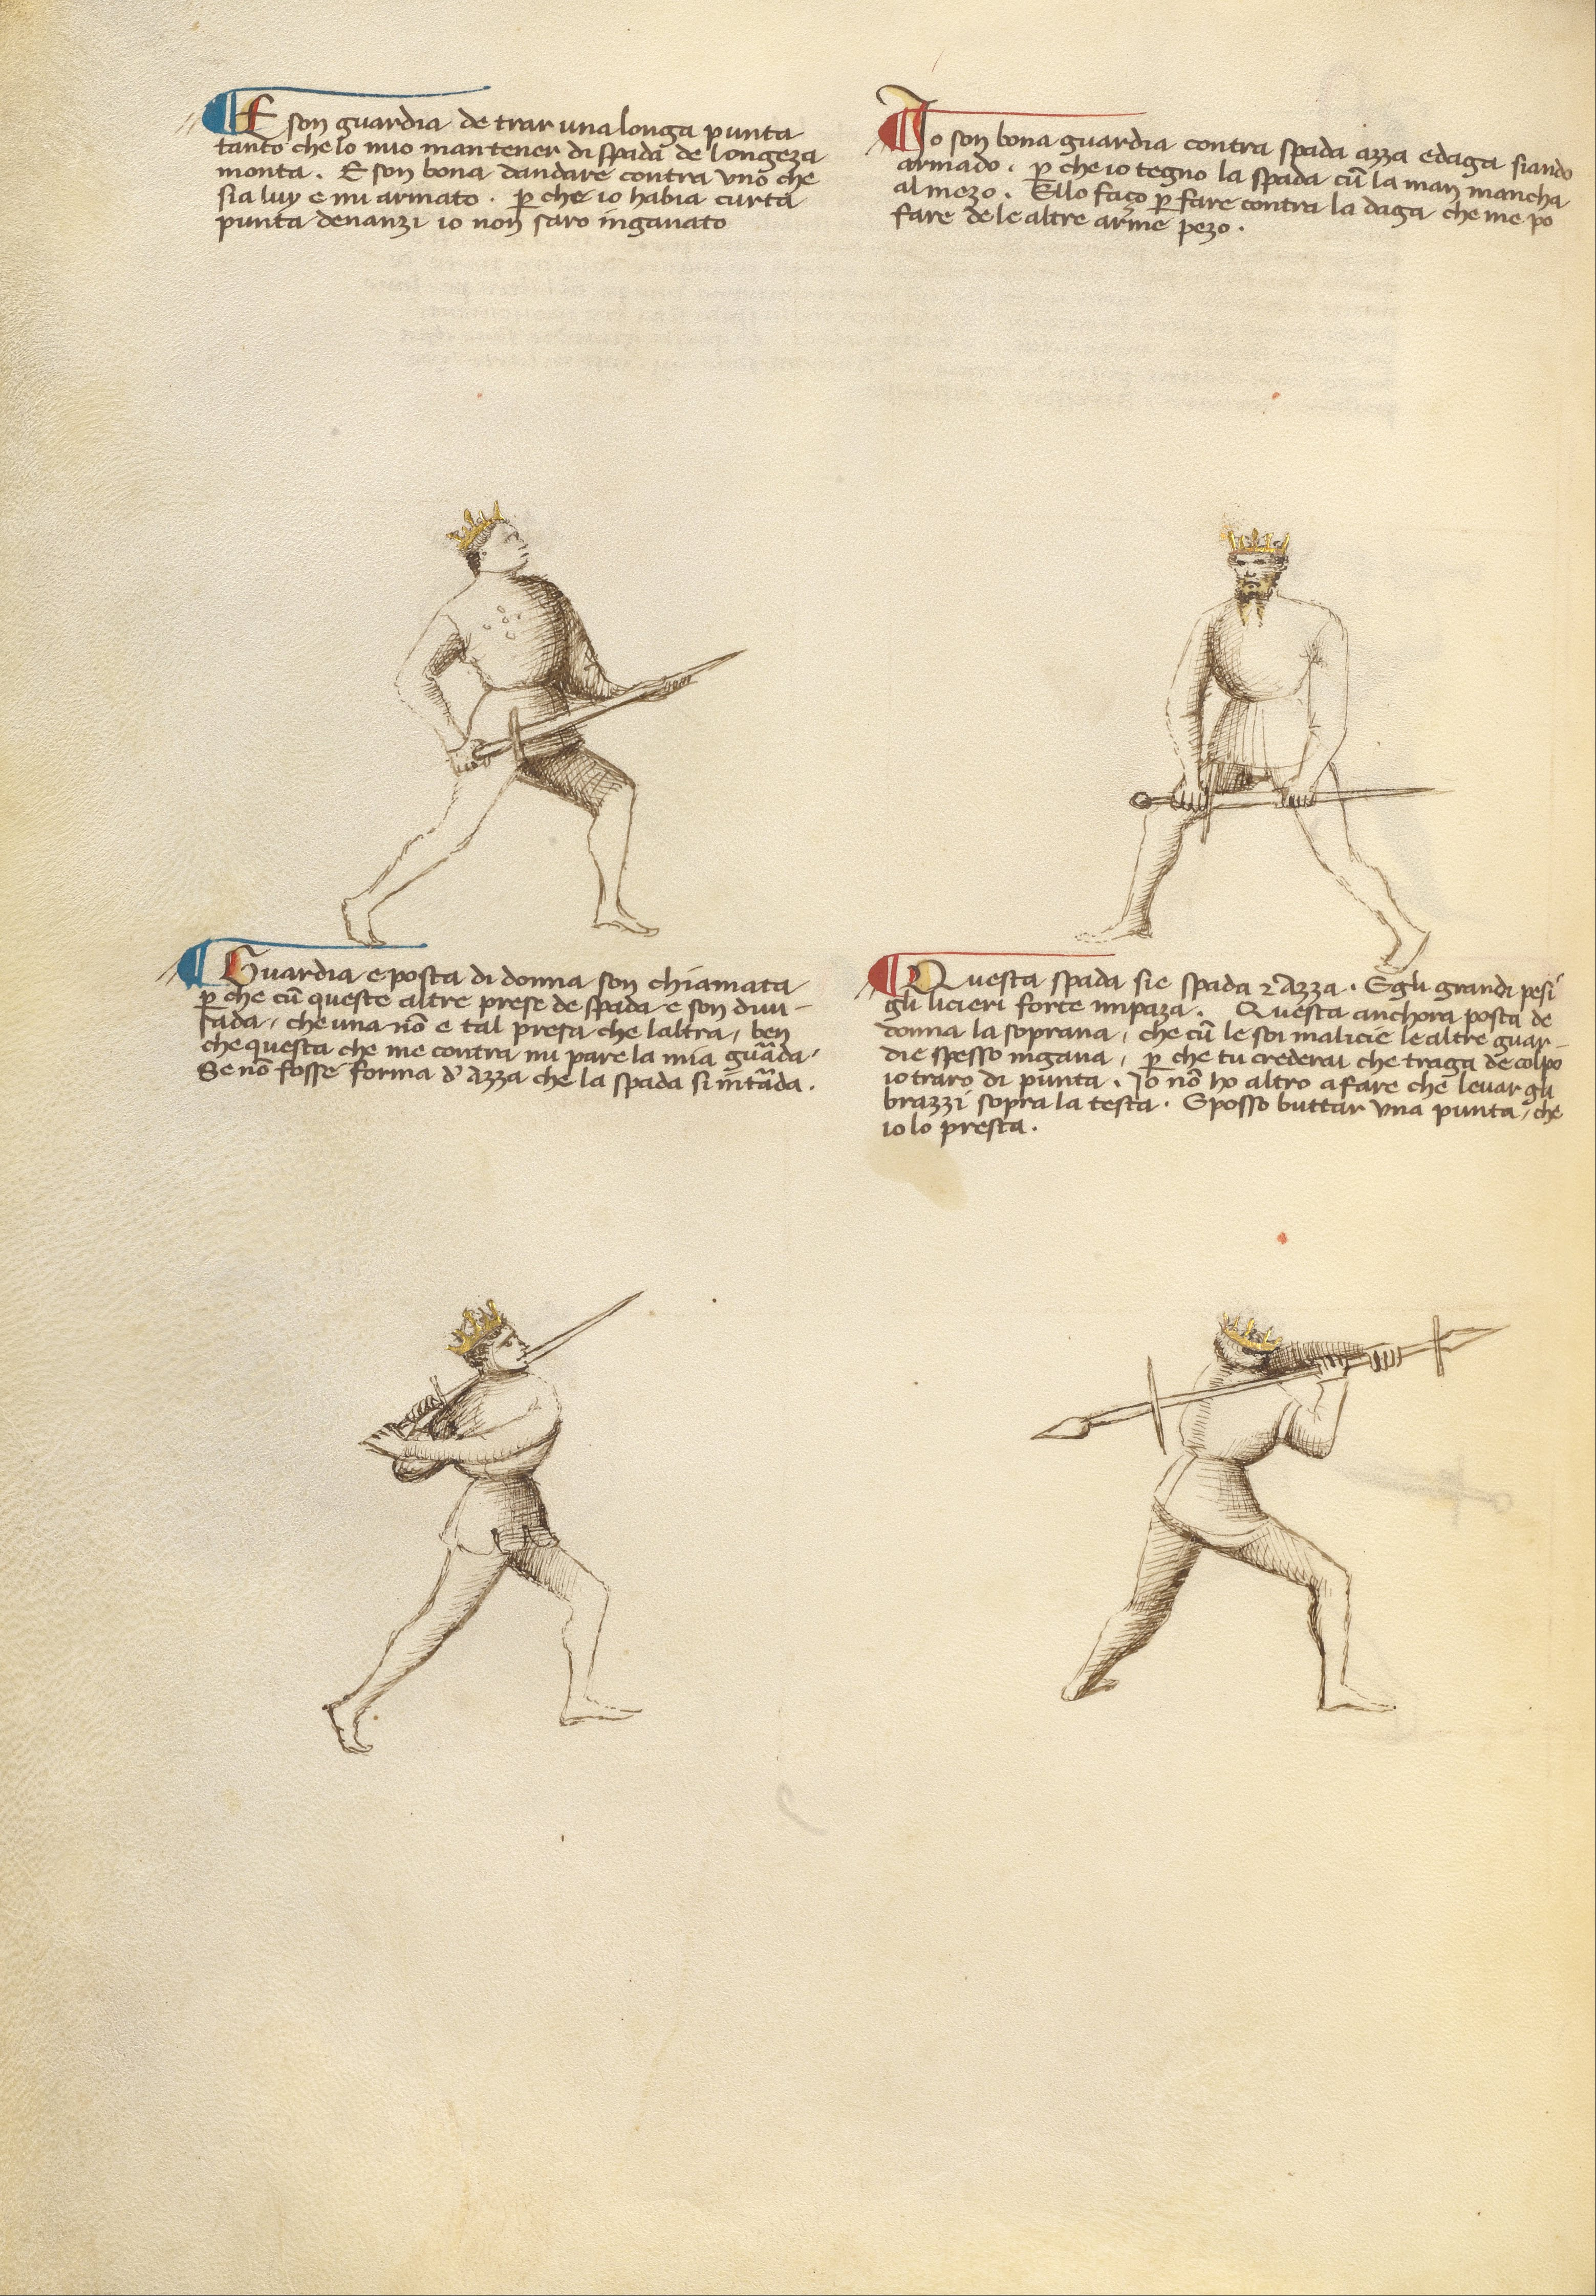 E son guardia de trar una longa punta
tanto che lo mio mantener di spada de longeza
monta . E son bona dandare contra uno che
sia luy e mi armato . p̱ che io habia curta
punta denanzi io non saro inganato
Io son bona guardia contra spada azza e daga siando
armado . p̱ che io tegno la spada cū la man mancha
al mezo . E llo faço p̱ fare contra la daga che me po
fare de le altre arme pezo .
Guardia e posta di donna son chiamata
p̱ che cū queste altre prese de spada e son divi-
sada, che una nō e tal presa che laltra, ben
che questa che me contra mi pare la mia guāda,
Se nō fosse forma d' azza che la spada si intāda .
Questa spada sie spada ⁊ Azza . E gli grandi pesi
gli licieri forte impaza . Questa anchora posta de
donna la soprana, che cū le soi malicie le altre guar-
die spesso ingana, p̱ che tu crederai che traga de colpo
io traro di punta . Io nō ho altro a fare che levar gli
brazzi sopra la testa . E posso buttar una punta, che
io lo presta .